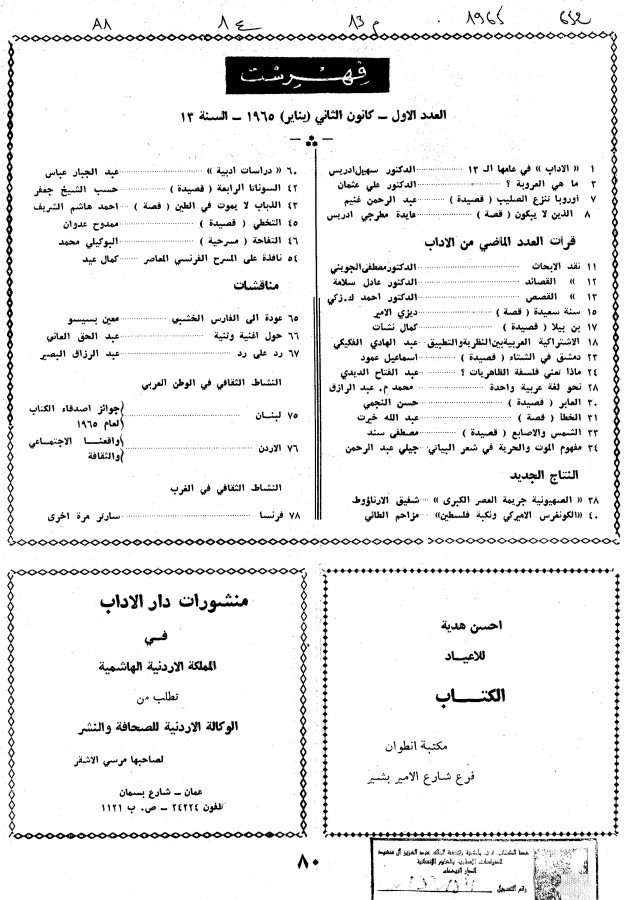 652
1965
م 13
ع 1
A1
فهرست
العدد الاول - كانون الثاني (يناير) ١٩٦٥ - السنة ١٣
١ « الاداب » في عامها الـ ١٣ الدكتور سهيل ادريس
٣ ما هي العروبة ؟ الدكتور علي عثمان
٧ أوروبا تنزع الصليب ( قصيدة ) عبد الرحمن غنيم
٨ الذين لا يبكون ( قصة ) عايدة مطرجي ادريس
قرأت العدد الماضي من الاداب
١١ نقد الابحاث الدكتور مصطفى الجويني
١٢ » القصائد الدكتور عادل سلامة
١٣ » القصص الدكتور احمد ك. زكي
١٥ سنة سعيدة ( قصة ) ديزي الامير
١٧ بن بيلا ( قصيدة ) كمال نشات
١٨ الاشتراكية العربية بين النظرية والتطبيق عبد الهادي الفكيكي
٢٣ دمشق في الشتاء ( قصيدة ) اسماعيل عمود
٢٤ ماذا تعني فلسفة الظاهريات ؟ عبد الفتاح الديدي
٢٨ نحو لغة عربية واحدة محمد م. عبد الرازق
٣٠ العابر ( قصيدة ) حسن النجمي
٣١ الخطأ ( قصة ) عبد الله خيرت
٣٣ الشمس والاصابع ( قصيدة ) مصطفى سند
٣٤ مفهوم الموت والحرية في شعر البياتي جيلي عبد الرحمن
النتاج الجديد
٣٨ « الصهيونية جريمة العصر الكبرى » شفيق الارناؤوط
٤٠ «الكونغرس الاميركي ونكبة فلسطين» مزاحم الطائي
٦٠ « دراسات ادبية » عبد الجبار عباس
٤٢ السوناتا الرابعة ( قصيدة ) حسب الشيخ جعفر
٤٣ الذباب لا يموت في الطين ( قصة ) احمد هاشم الشريف
٤٥ التخطي ( قصيدة ) ممدوح عدوان
٤٦ التفاحة ( مسرحية ) البوكيلي محمد
٥٤ نافذة على المسرح الفرنسي المعاصر كمال عيد
مناقشات
٦٥ عودة الى الفارس الخشبي معين بسيسو
٦٦ حول اغنية وثنية عبد الحق العاني
٦٧ رد على رد عبد الرزاق البصير
النشاط الثقافي في الوطن العربي
٧٥ لبنان (جوائز اصدقاء الكتاب
لعام ١٩٦٥
٧٦ الاردن (واقعنا الاجتماعي
والثقافة
النشاط الثقافي في الغرب
٧٨ فرنسا سارتر مرة اخرى
احسن هدية
للاعياد
الكتاب
مكتبة انطوان
فرع شارع الامير بشير
منشورات دار الاداب
في
المملكة الاردنية الهاشمية
تطلب من
الوكالة الاردنية للصحافة والنشر
لصاحبها مرسي الاشقر
عمان - شارع بسمان
تلفون ٢٤٢٢٤ - ص. ب ١١٢١
٨٠
رقم التسجيل